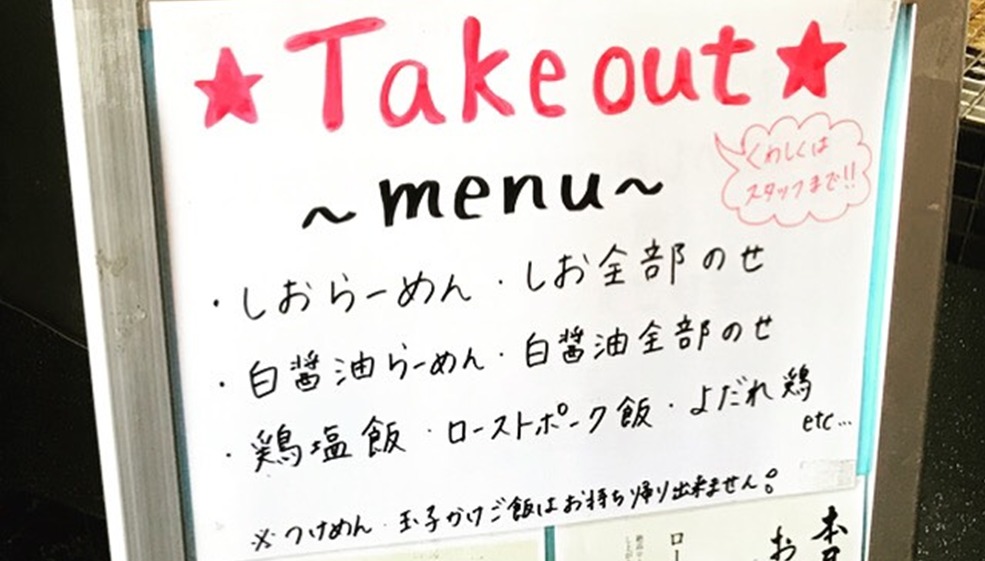 ★Take out★
~menu~
くわしくは
スタッフまで!!
・しおらーめん ・しお全部のせ
・白醤油らーめん・白醤油全部のせ
・鶏塩飯 ・ローストポーク飯 ・よだれ鶏
etc…
※つけめん・玉子かけご飯はお持ち帰り出来ません。
本日
お
ロー